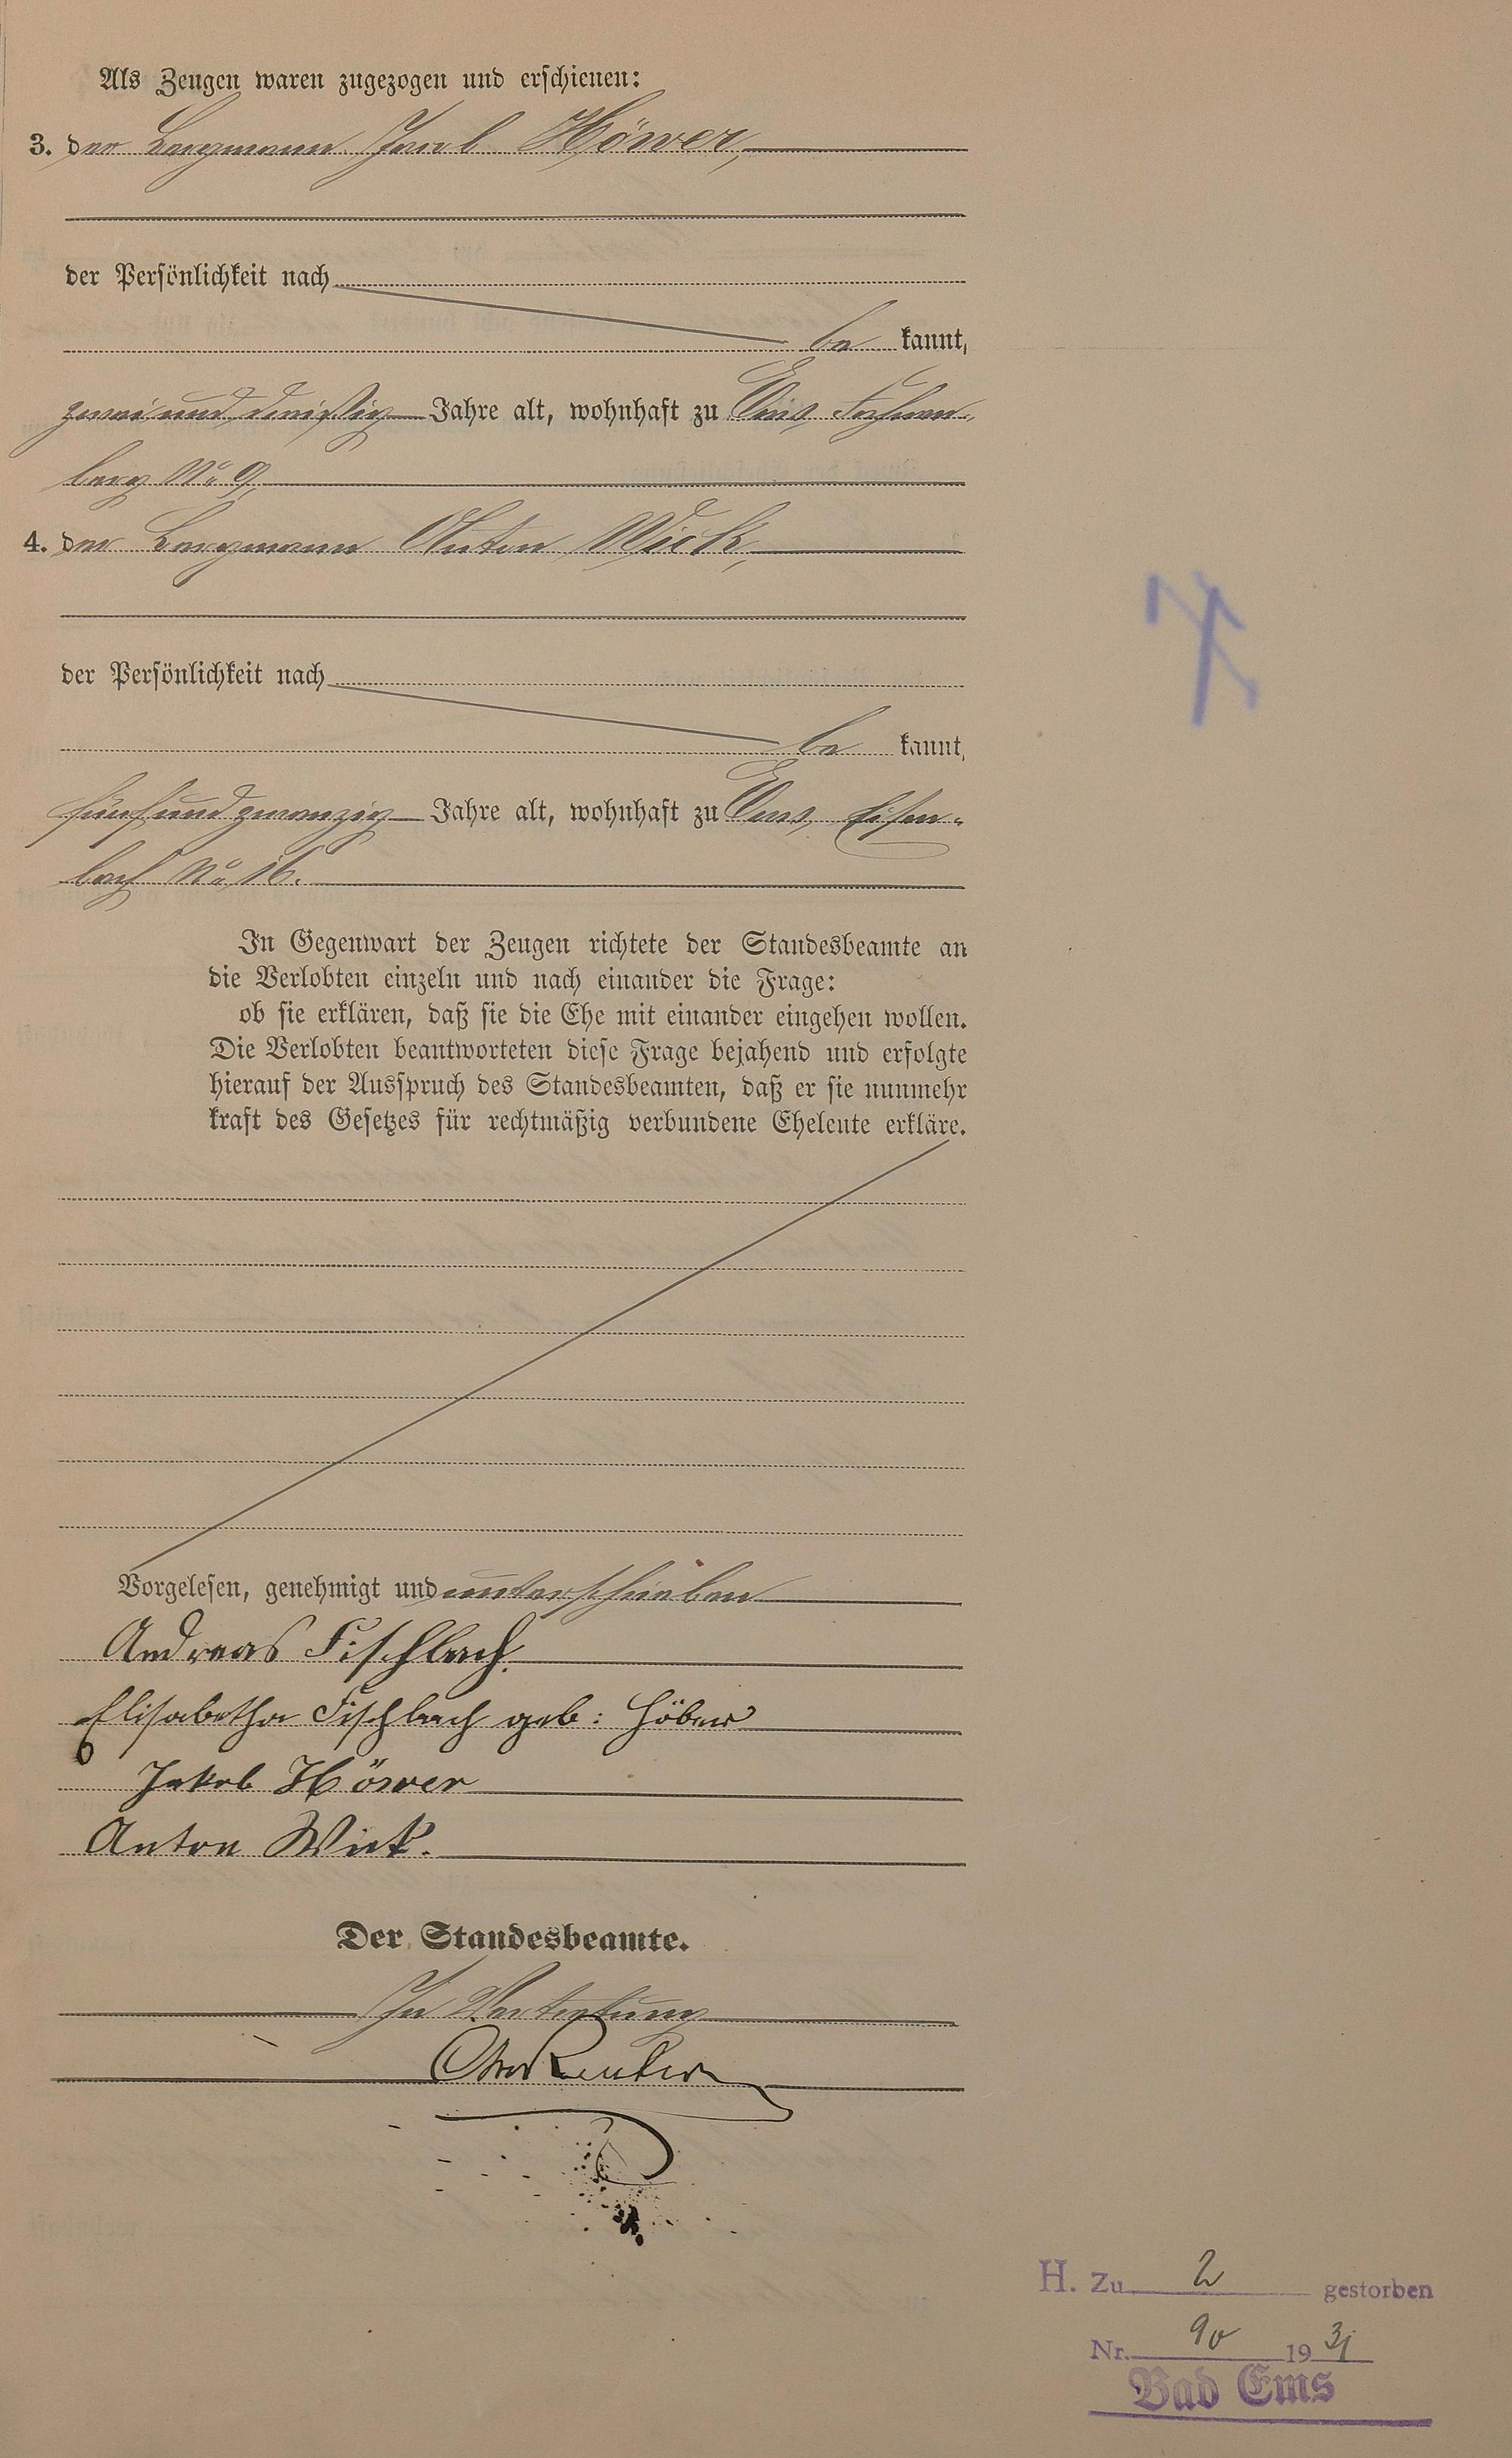 Als Zeugen waren zugezogen und erschienen:
3. der Bergmann Jacob Höwer,
der Persönlichkeit nach
be kannt,
zwei und dreißig Jahre alt, wohnhaft zu Ems,
berg No 9,
4. der Bergmann Anton Wick,
der Persönlichkeit nach
be kannt,
fünf und zwanzig Jahre alt, wohnhaft zu Ems, Eisen-
bach No 16.
In Gegenwart der Zeugen richtete der Standesbeamte an
die Verlobten einzeln und nach einander die Frage:
ob sie erklären, daß sie die Ehe mit einander eingehen wollen.
Die Verlobten beantworteten diese Frage bejahend und erfolgte
hierauf der Ausspruch des Standesbeamten, daß er sie nunmehr
kraft des Gesetzes für rechtmäßig verbundene Eheleute erkläre.
Vorgelesen, genehmigt und unterschrieben
Andreas Fischbach.
Elisabetha Fischbach geb: Höber
Jakob Höwer
Anton Wick.
Der Standesbeamte.
In Vertretung
H. Zu 2 gestorben
Nr. 90 1931
Bad Ems